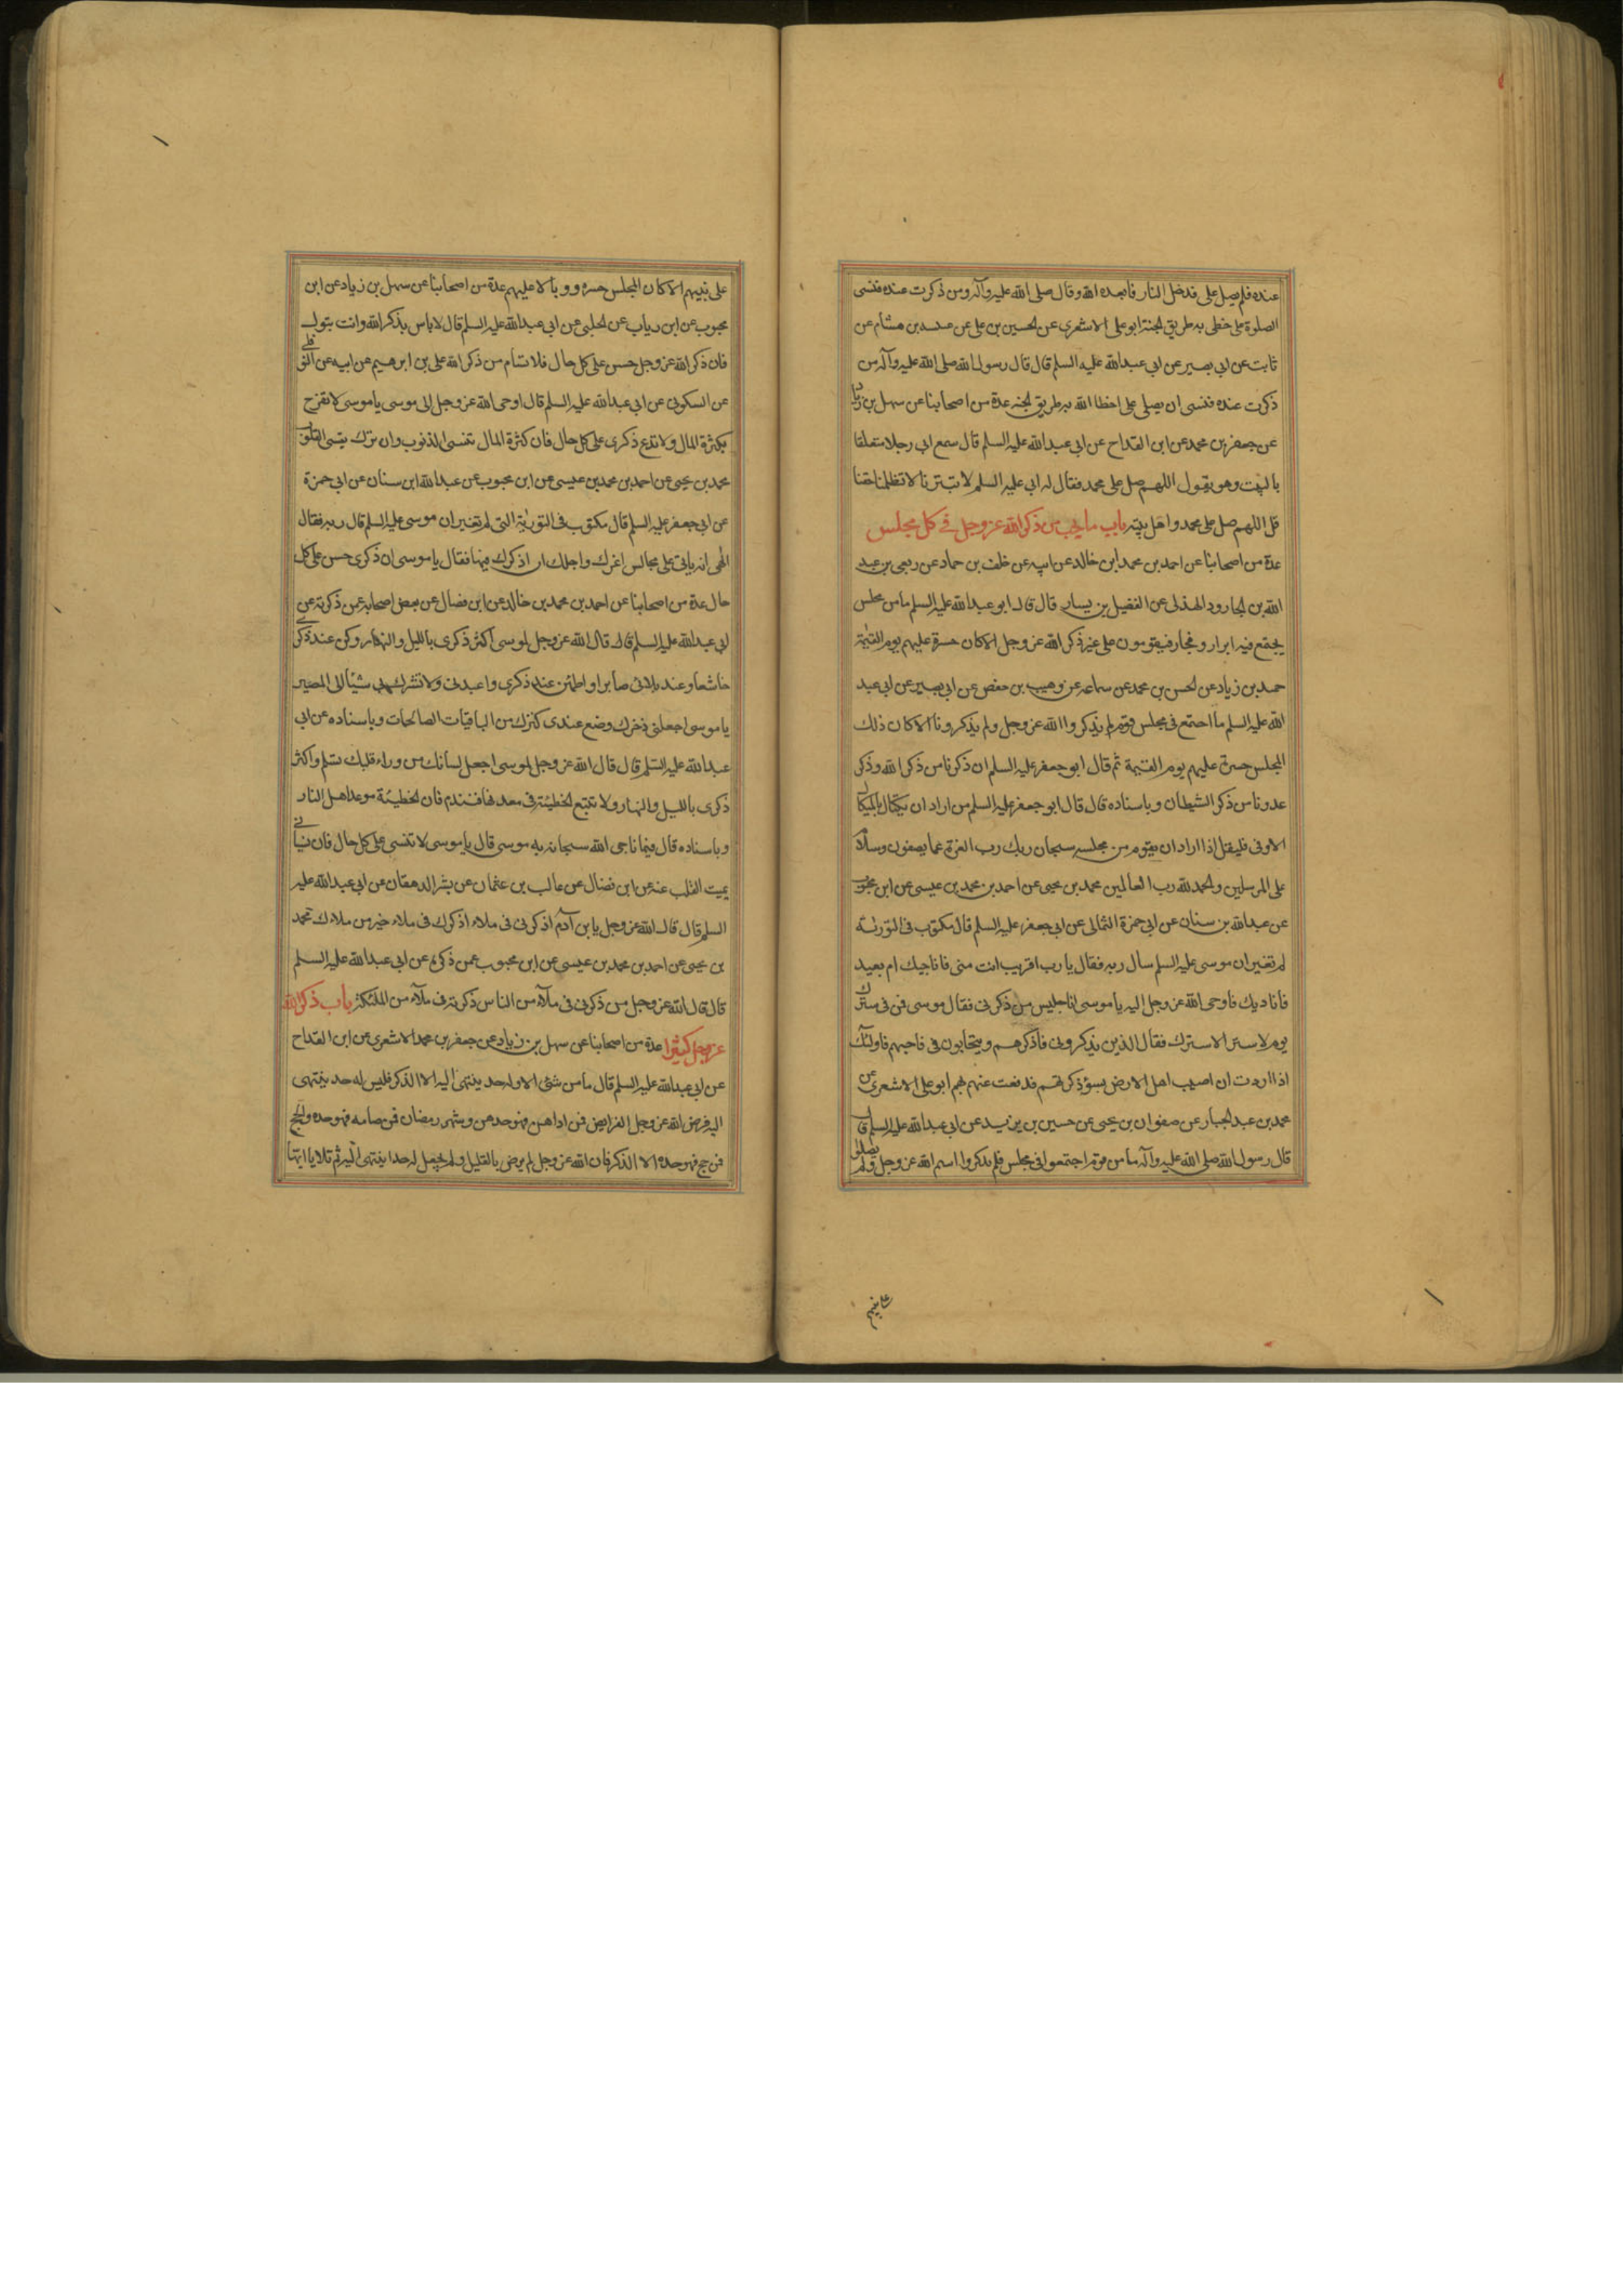 عنده فلم يصل على فدخل النار فابعده الله وقال صلى الله عليه وآله ومن ذكرت عنده فنسى
الصلوة على خطى به طريق الجنة ابو على الاشعرى عن الحسين بن على عن عبيد بن هشام عن
ثابت عن ابى بصير عن ابى عبدالله عليه السلم قال قال رسول الله صلى الله عليه وآله من
ذكرت عنده فنسى ان يصلى على اخطا الله به طريق الجنه عدة من اصحابنا عن سهل بن زياد
عن جعفر بن محمد عن ابن القداح عن ابى عبدالله عليه السلم قال سمع ابى رجلا متعلقا
بالبيت وهو يقول اللهم صل على محمد فقال له ابى عليه السلم لا تبترنا لا تظلمنا حقنا
قل اللهم صل على محمد واهل بيته باب ما يجب من ذكر الله عز وجل فى كل مجلس
عدة من اصحابنا عن احمد بن محمد ابن خالد عن ابيه عن خلف بن حماد عن ربعى بن عبد
الله بن الجارود الهذلى عن الفضيل بن يسار قال قال ابو عبدالله عليه السلم ما من مجلس
يجتمع فيه ابرار وفجار فيقومون على غير ذكر الله عز وجل الا كان حسرة عليهم يوم القيمة
حميد بن زياد عن الحسن بن محمد عن سماعه عن وهيب بن حفص عن ابى بصير عن ابى عبد
الله عليه السلم ما اجتمع فى مجلس قوم لم يذكروا الله عز وجل ولم يذكرونا الا كان ذلك
المجلس حسرة عليهم يوم القيمة ثم قال ابو جعفر عليه السلم ان ذكرنا من ذكر الله وذكر
عدونا من ذكر الشيطان وباسناده قال قال ابو جعفر عليه السلم من اراد ان يكتال بالمكيال
الاوفى فليقل اذا اراد ان يقوم من مجلسه سبحان ربك رب العزة عما يصفون وسلام
على المرسلين والحمد لله رب العالمين محمد بن يحيى عن احمد بن محمد بن عيسى عن ابن محبوب
عن عبدالله بن سنان عن ابى حمزة الثمالى عن ابى جعفر عليه السلم قال مكتوب فى التورية
لم تغير ان موسى عليه السلم سال ربه فقال يا رب اقريب انت منى فاناجيك ام بعيد
فاناديك فاوحى الله عز وجل اليه يا موسى انا جليس من ذكرنى فقال موسى فمن فى سترك
يوم لا ستر الا سترك فقال الذين يذكرونى فاذكرهم ويتحابون فى فاحبهم فاولئك
اذا اردت ان اصيب اهل الارض بسوء ذكرتهم فدفعت عنهم بهم ابو على الاشعرى عن
محمد بن عبد الجبار عن صفوان بن يحيى عن حسين بن يزيد عن ابى عبدالله عليه السلم قال
قال رسول الله صلى الله عليه وآله ما من قوم اجتمعوا فى مجلس فلم يذكروا اسم الله عز وجل ولم يصلوا
على نبيهم الا كان المجلس حسره ووبالا عليهم عدة من اصحابنا عن سهل بن زياد عن ابن
محبوب عن ابن رياب عن الحلبى عن ابى عبدالله عليه السلم قال لا باس بذكر الله وانت تبول
فان ذكر الله عز وجل حسن على كل حال فلا تسأم من ذكر الله على بن ابرهيم عن ابيه عن النوفلى
عن السكونى عن ابى عبدالله عليه السلم قال اوحى الله عز وجل الى موسى يا موسى لا تفرح
بكثرة المال ولا تدع ذكرى على كل حال فان كثرة المال تنسى الذنوب وان ترك يقسى القلوب
محمد بن يحيى عن احمد بن محمد بن عيسى عن ابن محبوب عن عبدالله ابن سنان عن ابى حمزة
عن ابى جعفر عليه السلم قال مكتوب فى التورية التى لم تغير ان موسى عليه السلم قال ربه فقال
الهى انه ياتى على مجالس اعزك واجلك ان اذكرك فيها فقال يا موسى ان ذكرى حسن على كل
حال عدة من اصحابنا عن احمد بن محمد بن خالد عن ابن فضال عن بعض اصحابه عمن ذكرته عن
ابى عبدالله عليه السلم قال قال الله عز وجل لموسى اكثر ذكرى بالليل والنهار وكن عند ذكرى
خاشعا وعند بلائى صابرا واطمئن عند ذكرى واعبدنى ولا تشرك بى شيئا الى المصير
يا موسى اجعلنى ذخرك وضع عندى كنزك من الباقيات الصالحات وباسناده عن ابى
عبدالله عليه السلم قال قال الله عز وجل لموسى اجعل لسانك من وراء قلبك تسلم واكثر
ذكرى بالليل والنهار ولا تتبع الخطيئة فى معدنها فتندم فان الخطيئة موعد اهل النار
وباسناده قال فيما ناجى الله سبحانه به موسى قال يا موسى لا تنسنى على كل حال فان نسيانى
يميت القلب عنه عن ابن فضال عن غالب بن عثمان عن بشر الدهقان عن ابى عبدالله عليه
السلم قال قال الله عز وجل يا بن آدم اذكرنى فى ملاء اذكرك فى ملاء خير من ملاءك محمد
بن يحيى عن احمد بن محمد بن عيسى عن ابن محبوب عمن ذكره عن ابى عبدالله عليه السلم
قال قال الله عز وجل من ذكرنى فى ملآء من الناس ذكرته فى ملآء من الملئكة باب ذكر الله
عز وجل كثيرا عدة من اصحابنا عن سهل بن زياد عن جعفر بن محمد الاشعرى عن ابن القداح
عن ابى عبدالله عليه السلم قال ما من شئ الا وله حد ينتهى اليه الا الذكر فليس له حد ينتهى
اليه فرض الله عز وجل الفرايض فمن اداهن فهو حدهن وشهر رمضان فمن صامه فهو حده والحج
فمن حج فهو حده الا الذكر فان الله عز وجل لم يرض بالقليل ولم يجعل له حدا ينتهى اليه ثم تلا يا ايها